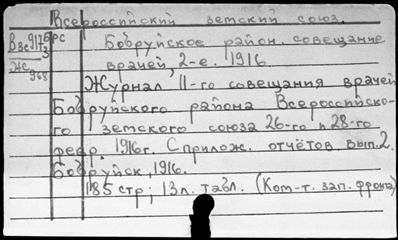 Всероссийский земский союз.
Вас917 6/3 рс Бобруйское район. совещание
Жс 968 врачей, 2-е. 1916.
Журнал II-го совещания врачей
Бобруйского района Всероссийско-
го земского союза 26-го и 28-го
февр. 1916г. С прилож. отчётов вып.2.
Бобруйск, 1916.
185 стр; 13л. табл. (Ком-т. зап. фронта)